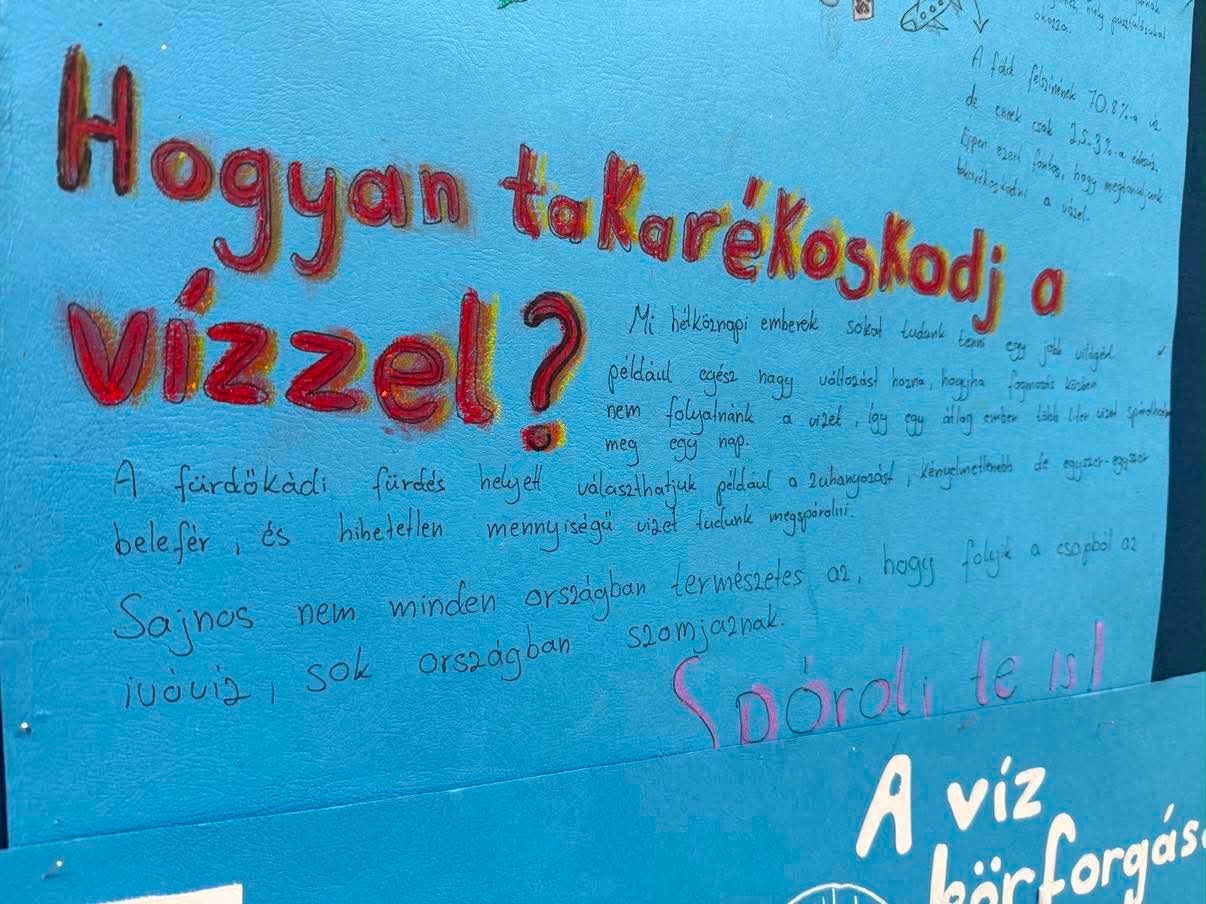 mely pusztulásukat
okozza.
A föld felszínének 70.8%-a víz
de ennek csak 2.5-3%-a édesvíz.
Éppen ezért fontos, hogy megtanuljunk
takarékoskodni a vízzel.
Hogyan takarékoskodj a
vízzel?
Mi hétköznapi emberek sokat tudunk tenni egy jobb világért
például egész nagy változást hozna, hogyha fogmosás közben
nem folyatnánk a vizet, így egy átlag ember több liter vizet spórolhatna
meg egy nap.
A fürdőkádi fürdés helyett választhatjuk például a zuhanyozást, kényelmetlenebb de egyszer-egyszer
belefér, és hihetetlen mennyiségű vizet tudunk megspórolni.
Sajnos nem minden országban természetes az, hogy folyik a csapból az
ivóviz, sok országban szomjaznak.
Spórolj te is!
A víz
körforgás